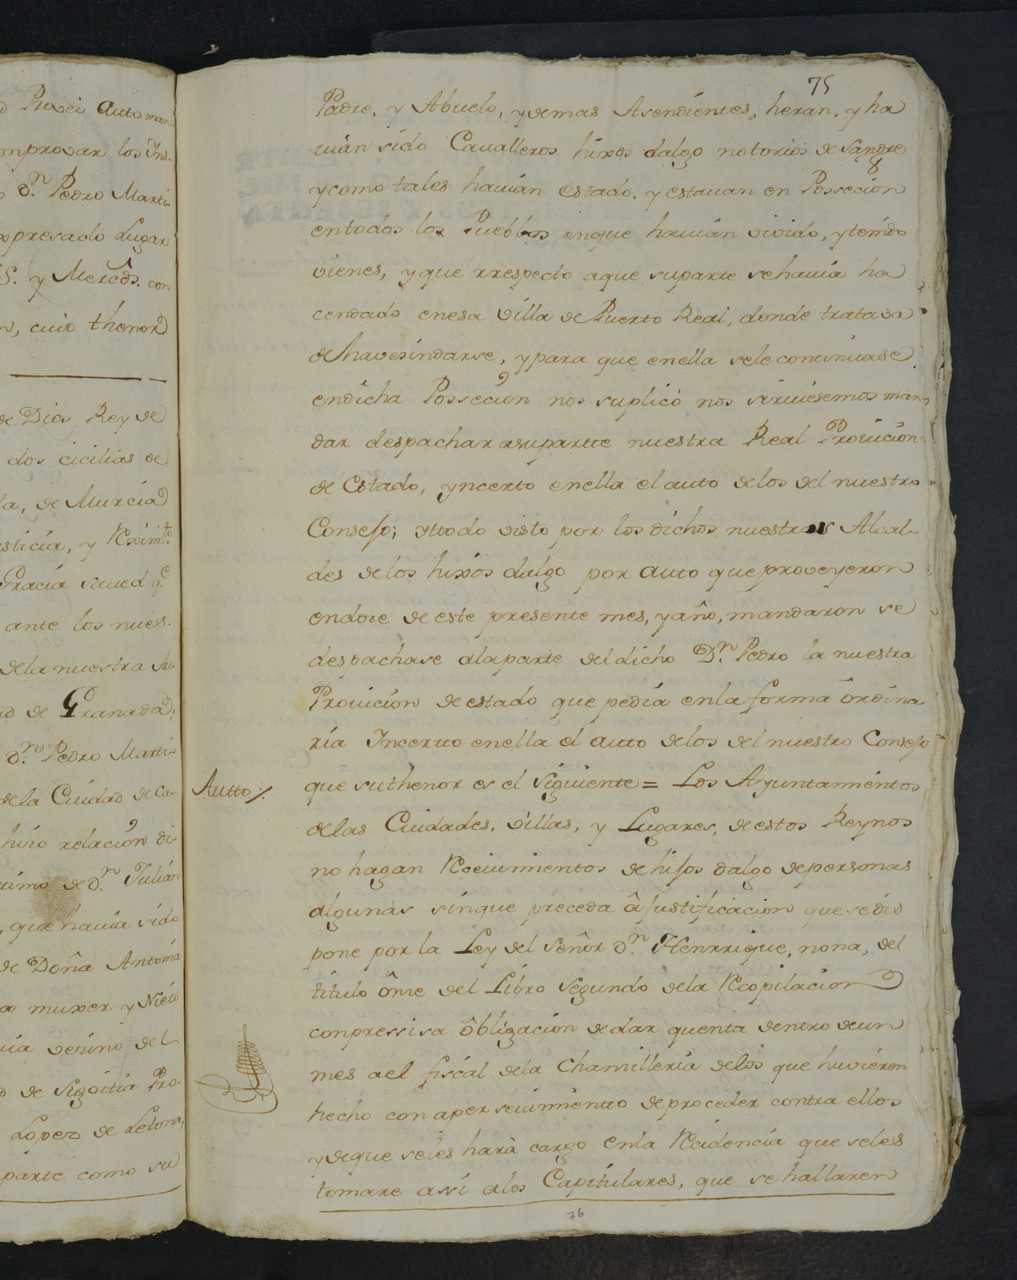 d Provei auto man
mprovar los Ins-
o dⁿ. Pedro Marti-
xpresado Lugar
S. y Mercds. con
n, cuio thenor
de Dios Rey de
dos cicilias de
la, de Murcia
sticia, y Reximto.
Gracia saued qe
ante los nues-
de la nuestra Au
d de Granada,
dⁿ. Pedro Marti-
de la Ciudad de Ca-
hizo relacion di-
ximo de dⁿ. Julian
, que hauia sido
de Doña Antonia
a muxer y Nieto
uia vesino del
d de Sigoitia Pro-
Lopez de Letona,
parte como su
75
Padre, y Abuelo, y demas Asendientes, heran, y ha
uian sido Caualleros hixos dalgo notorios de Sangre
y como tales hauian estado, y estauan en Possecion
entodos los Pueblos enque hauian vivido, y tenido
vienes, y que rrespecto aque suparte sehauia ha
cendado enesa Villa de Puerto Real, donde tratava
de havesindarse, y para que enella sele continuase
endicha Possecion nos suplicó nos siruiesemos man
dar despachar asupartte nuestra Real Prouicion
de Estado, yncerto enella el auto delos del nuestro
Consejo; yttodo visto por los dichos nuestros Alcal-
des delos hixos dalgo por auto que proveyeron
endoce de este presente mes, y año, mandaron se
despachase alaparte deldicho Dⁿ. Pedro la nuestra
Prouicion de estado que pedia enla forma ordina
ria Incerto enella el auto delos del nuestro Consejo
Autto /.
que suthenor es el siguiente = Los Ayuntamientos
delas Ciudades, villas, y Lugares, de estos Reynos
no hagan Reciuimientos de hijos dalgo depersonas
algunas sinque preceda la justificacion que se dis
pone por la Ley del Señor dⁿ. Henrrique, nona, del
titulo once del Libro Segundo dela Recopilacion
conpressisa obligacion de dar quenta dentro de un
mes a el fiscal dela Chansilleria delos que huvieren
hecho con apersevimiento de proceder contra ellos
y deque seles hará cargo enla Recidencia que seles
tomare así alos Capitulares, que se hallaren
76